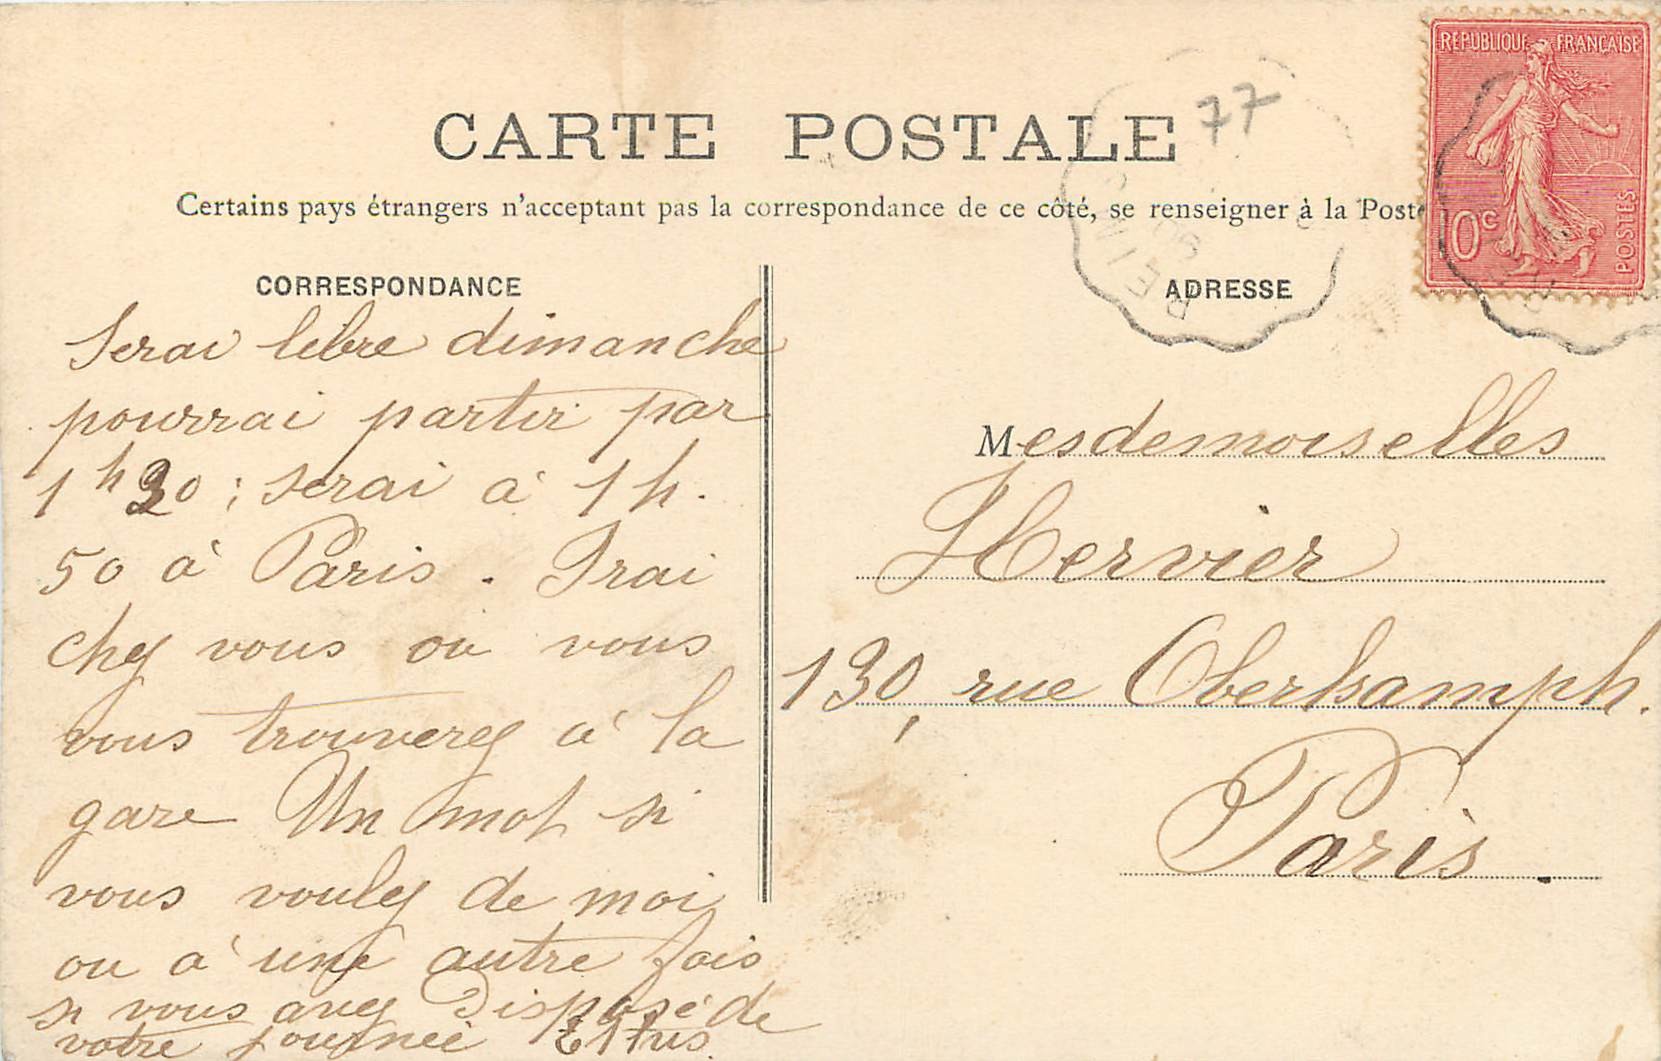 CARTE POSTALE
77
RÉPUBLIQUE FRANÇAISE
10c
POSTES
Certains pays étrangers n'acceptant pas la correspondance de ce côté, se renseigner à la Poste
CORRESPONDANCE
Serai libre dimanche
pourrai partir par
1h30 ; serai à 1h.
50 à Paris. Irai
chez vous où vous
vous trouverez à la
gare Un mot si
vous voulez de moi
ou à une autre fois
si vous avez disposé de
votre journée
ADRESSE
Mesdemoiselles
Hervier
130, rue Oberkampf.
Paris.
REIMS